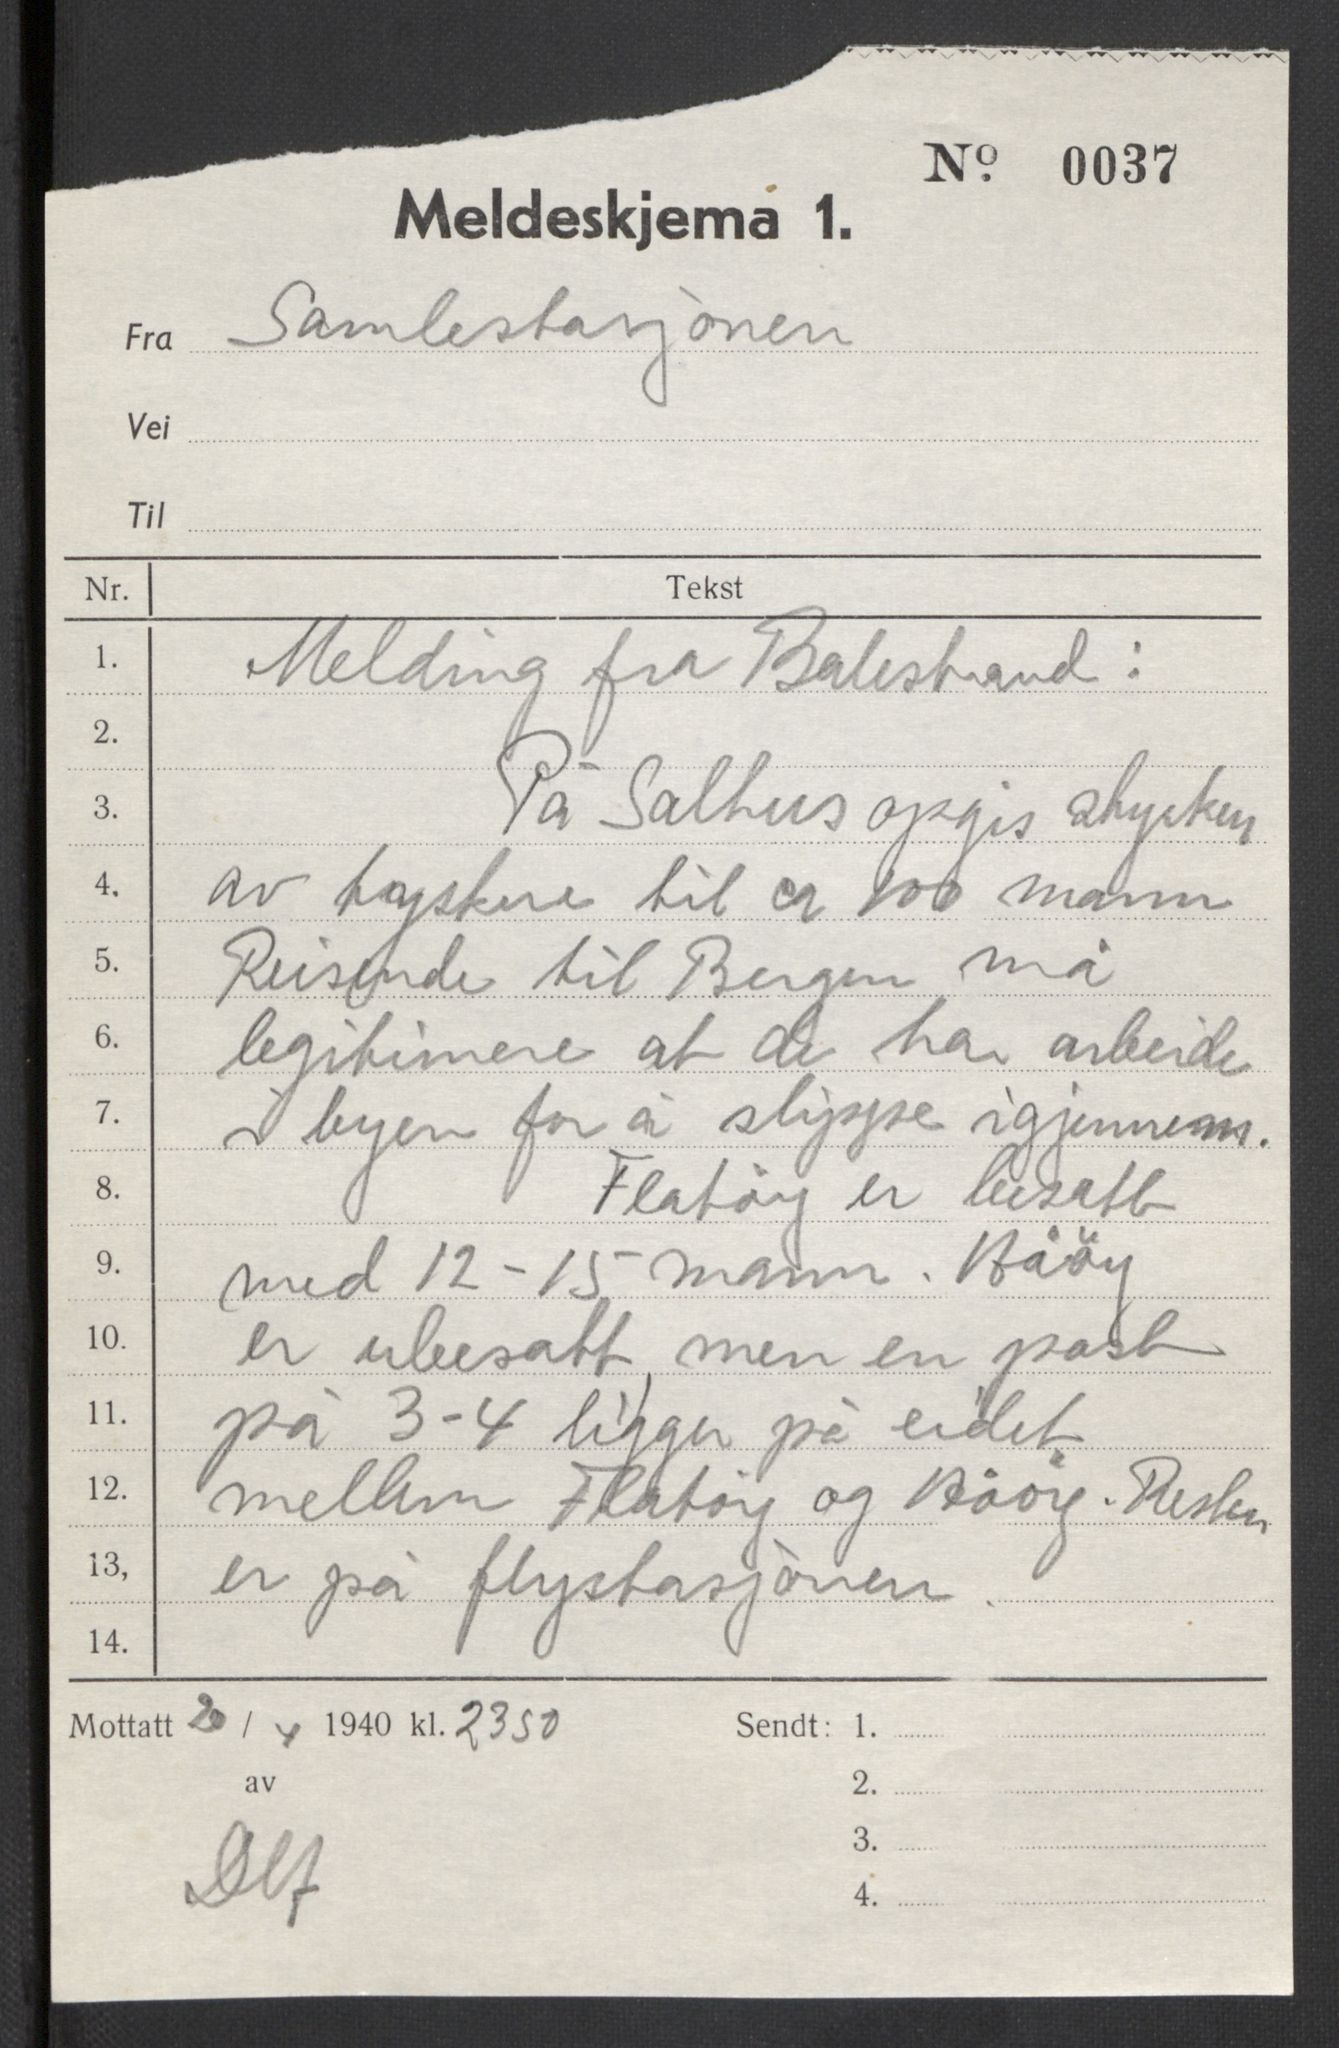 No. 0037
Meldeskjema 1.
Fra Samlestasjonen
Vei
Til
Nr. Tekst
1. Melding fra Balestrand:
2.
3. På Salhus opgis styrken
4. av tyskere til ca 100 mann
5. Reisende til Bergen må
6. legitimere at de har arbeide
7. i byen for å slippe igjennem.
8. Flatöy er besatt
9. med 12-15 mann. Håöy
10. er ubesatt, men en post
11. på 3-4 ligger på eidet
12. mellem Flatöy og Håöy. Resten
13, er på flystasjonen.
14.
Mottatt 20/4 1940 kl. 2350 Sendt: 1.
av 2.
3.
4.